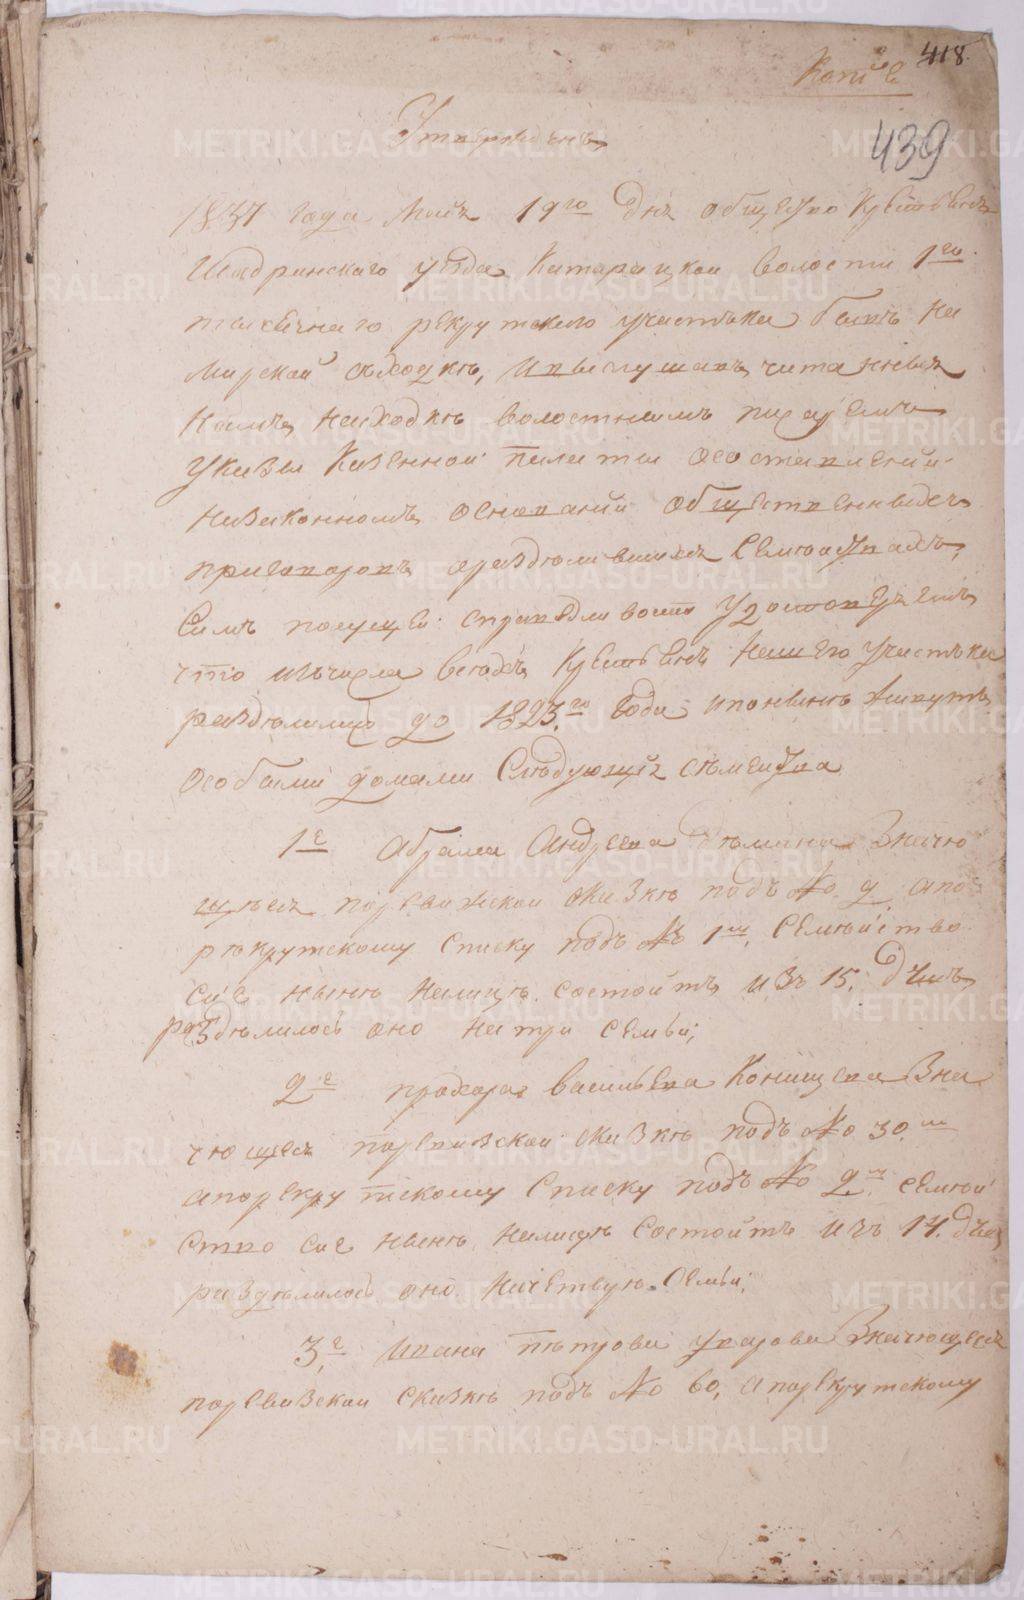 418.
Копiе
439
Утвержденъ
1837 года Маiя 19го дня общество Крестьянъ
Шадринскаго уѣзда Катарацкой волости 1го
тысячнаго рекрутскаго участка бывъ на
мирской сходкѣ, и выслушавъ читанныя
намъ на сходкѣ волостнымъ писаремъ
указы Казенной палаты о составленiи
на законномъ основанiи общественныхъ
приговоровъ о раздѣлившихся семействахъ,
симъ по сущей справедливости удостовѣряемъ
что изъ числа всѣхъ крестьянъ нашего участка
раздѣлились до 1823го года и по нынѣ живутъ
особыми домами слѣдующiя семейства
1е Абрама Андреева значю
щееся по ревизской сказкѣ подъ № 9, а по
рѣкрутскому списку подъ № 1м, семейство
сiе нынѣ на лицѣ состоитъ изъ 15. душъ
раздѣлилось оно на три семьи;
2е Прохора Васильева Конищева зна
чющееся по ревизской сказкѣ подъ № 30м
а по рекрутскому списку подъ № 2м. семей
ство сiе нынѣ на лицѣ состоитъ изъ 14. душъ
раздѣлилось оно на четвyре семьи;
3е, Ивана Петрова Уварова значющееся
по ревизской сказкѣ подъ № 60, а по рекрутскому
METRIKI.GASO-URAL.RU